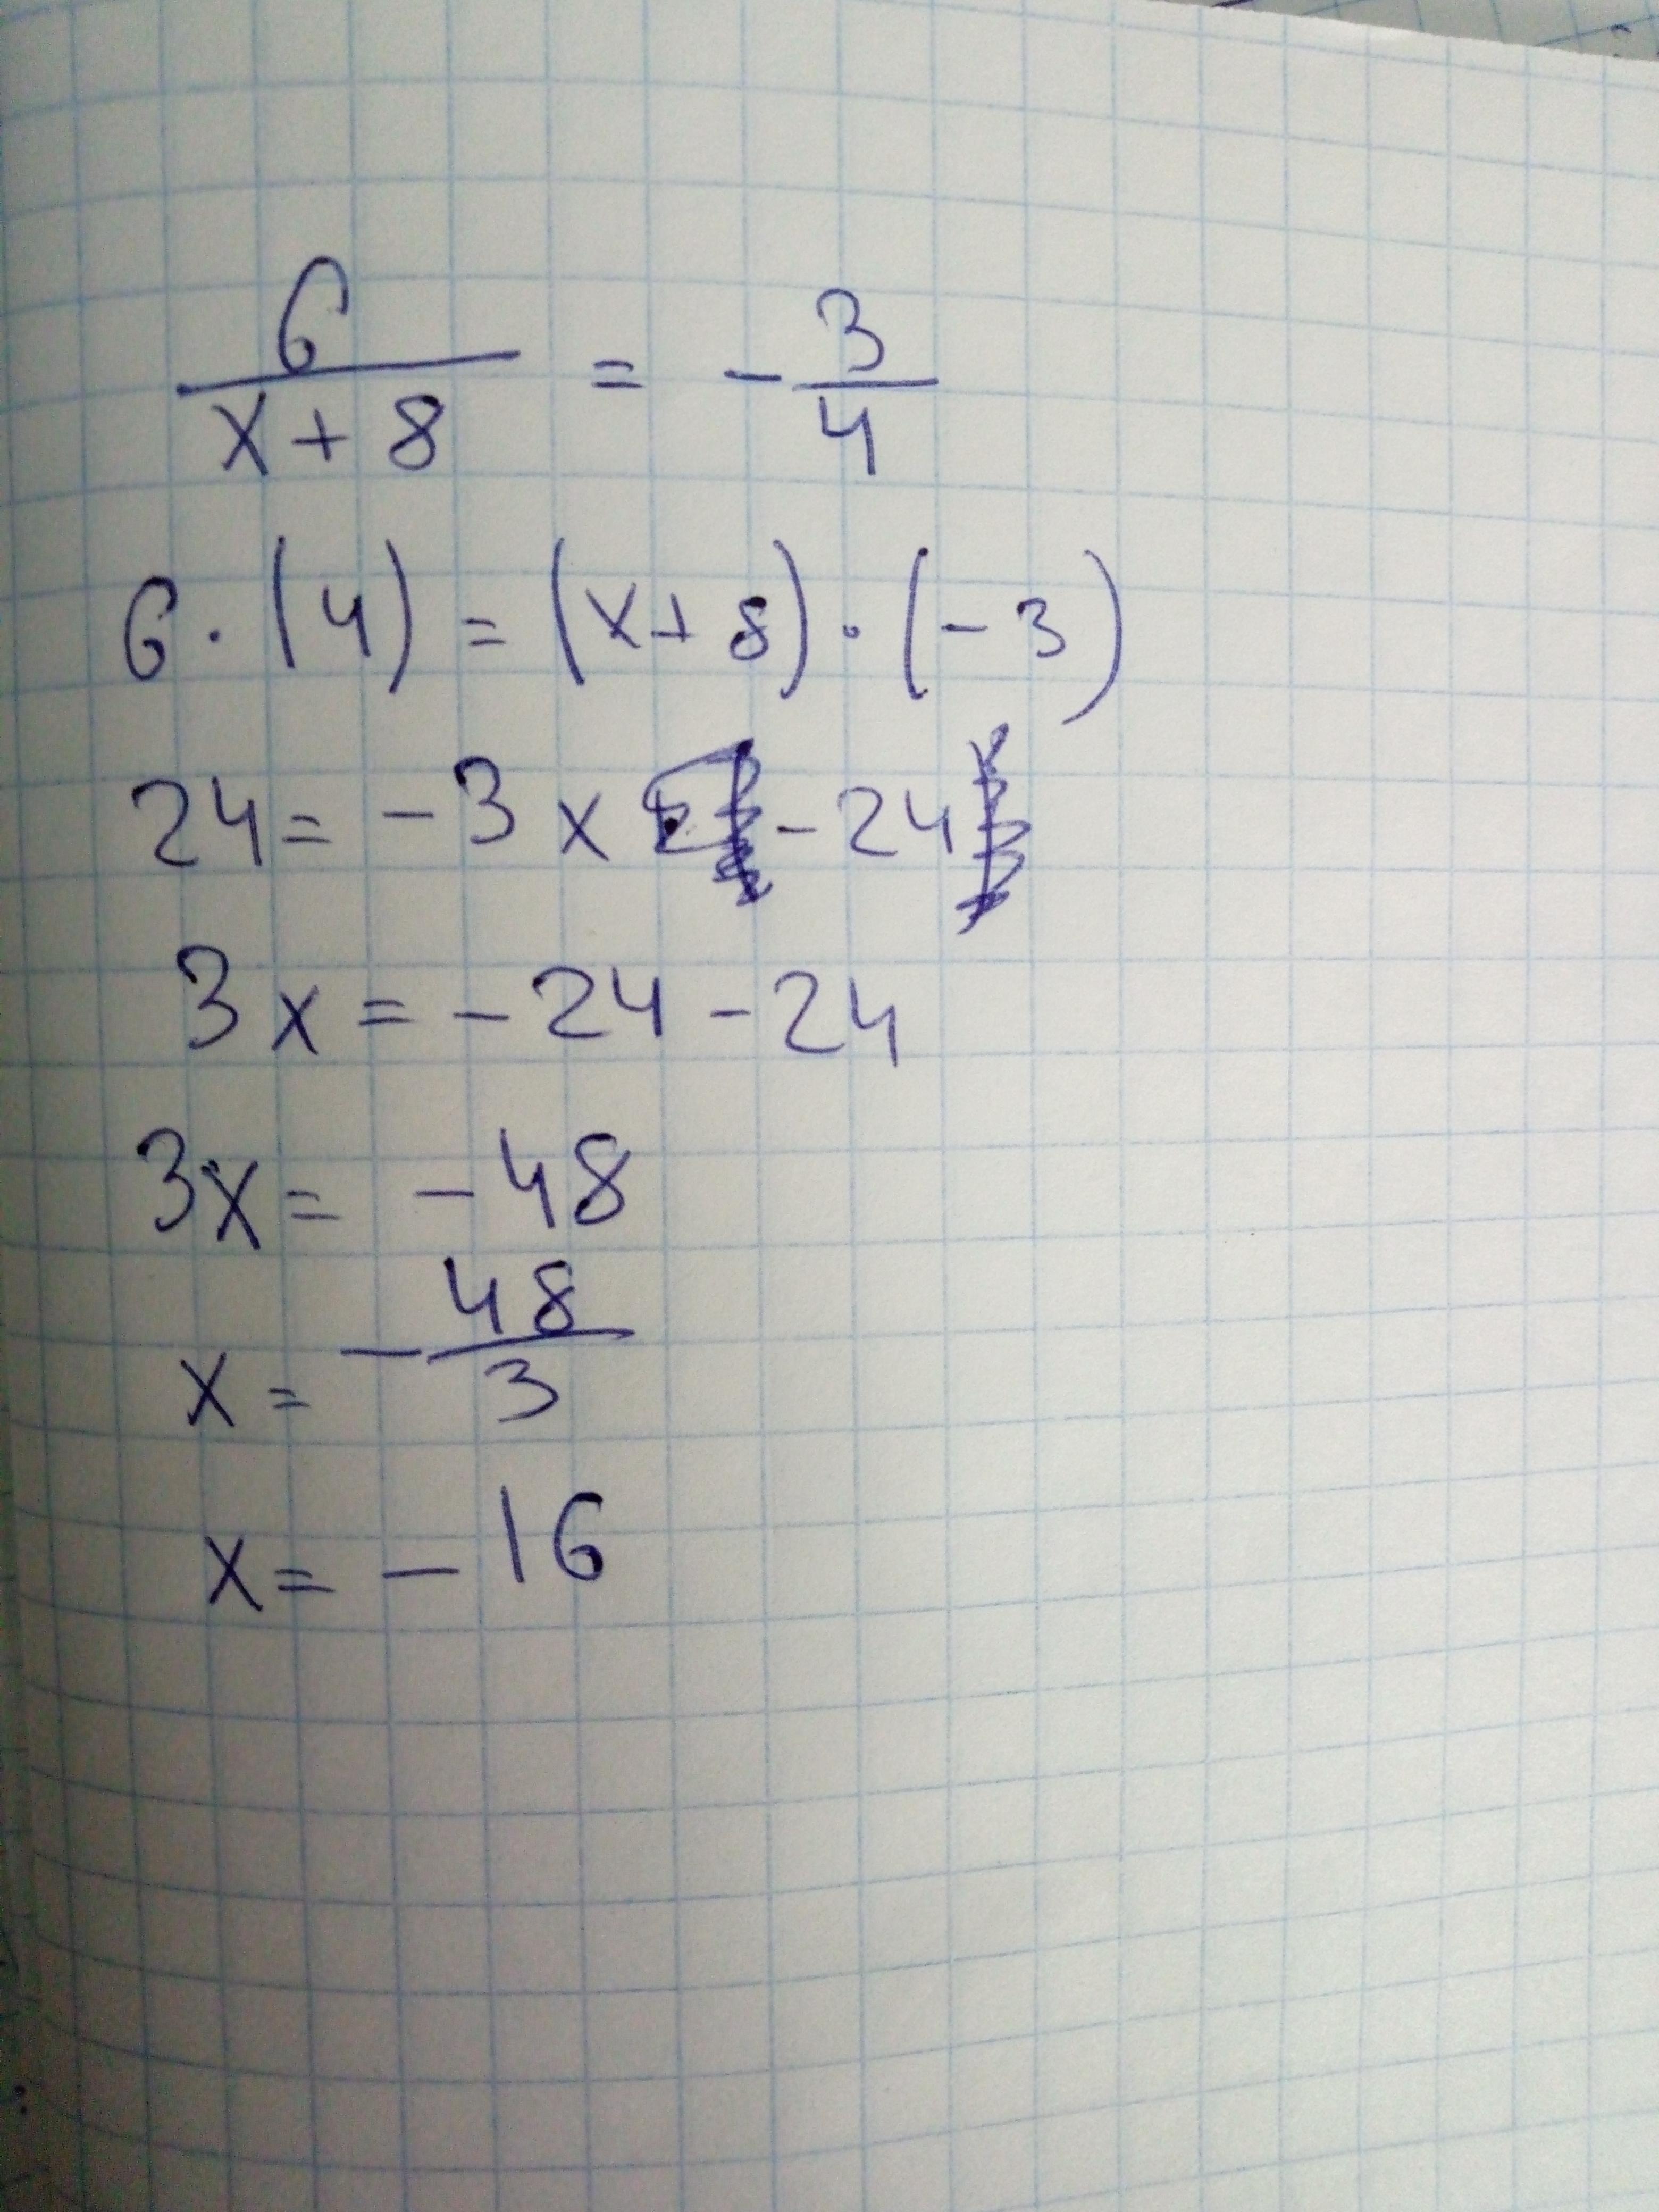 6/(x+8) = -3/4
6·(4) = (x+8)·(-3)
24 = -3x -24
3x = -24 -24
3x = -48
x = -48/3
x = -16